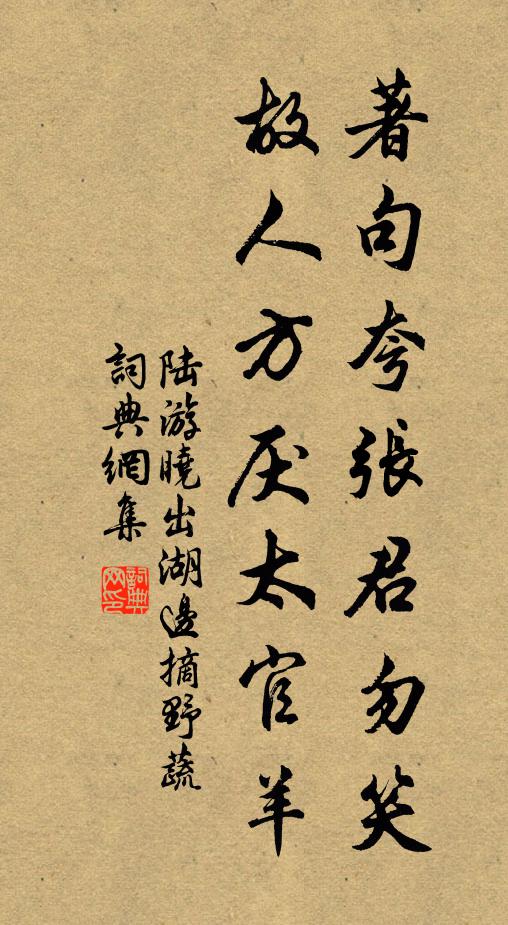 著句夸張君勿笑
故人方厌太官羊
陆游曉出湖邊摘野蔬
詞典網集
詞典網印